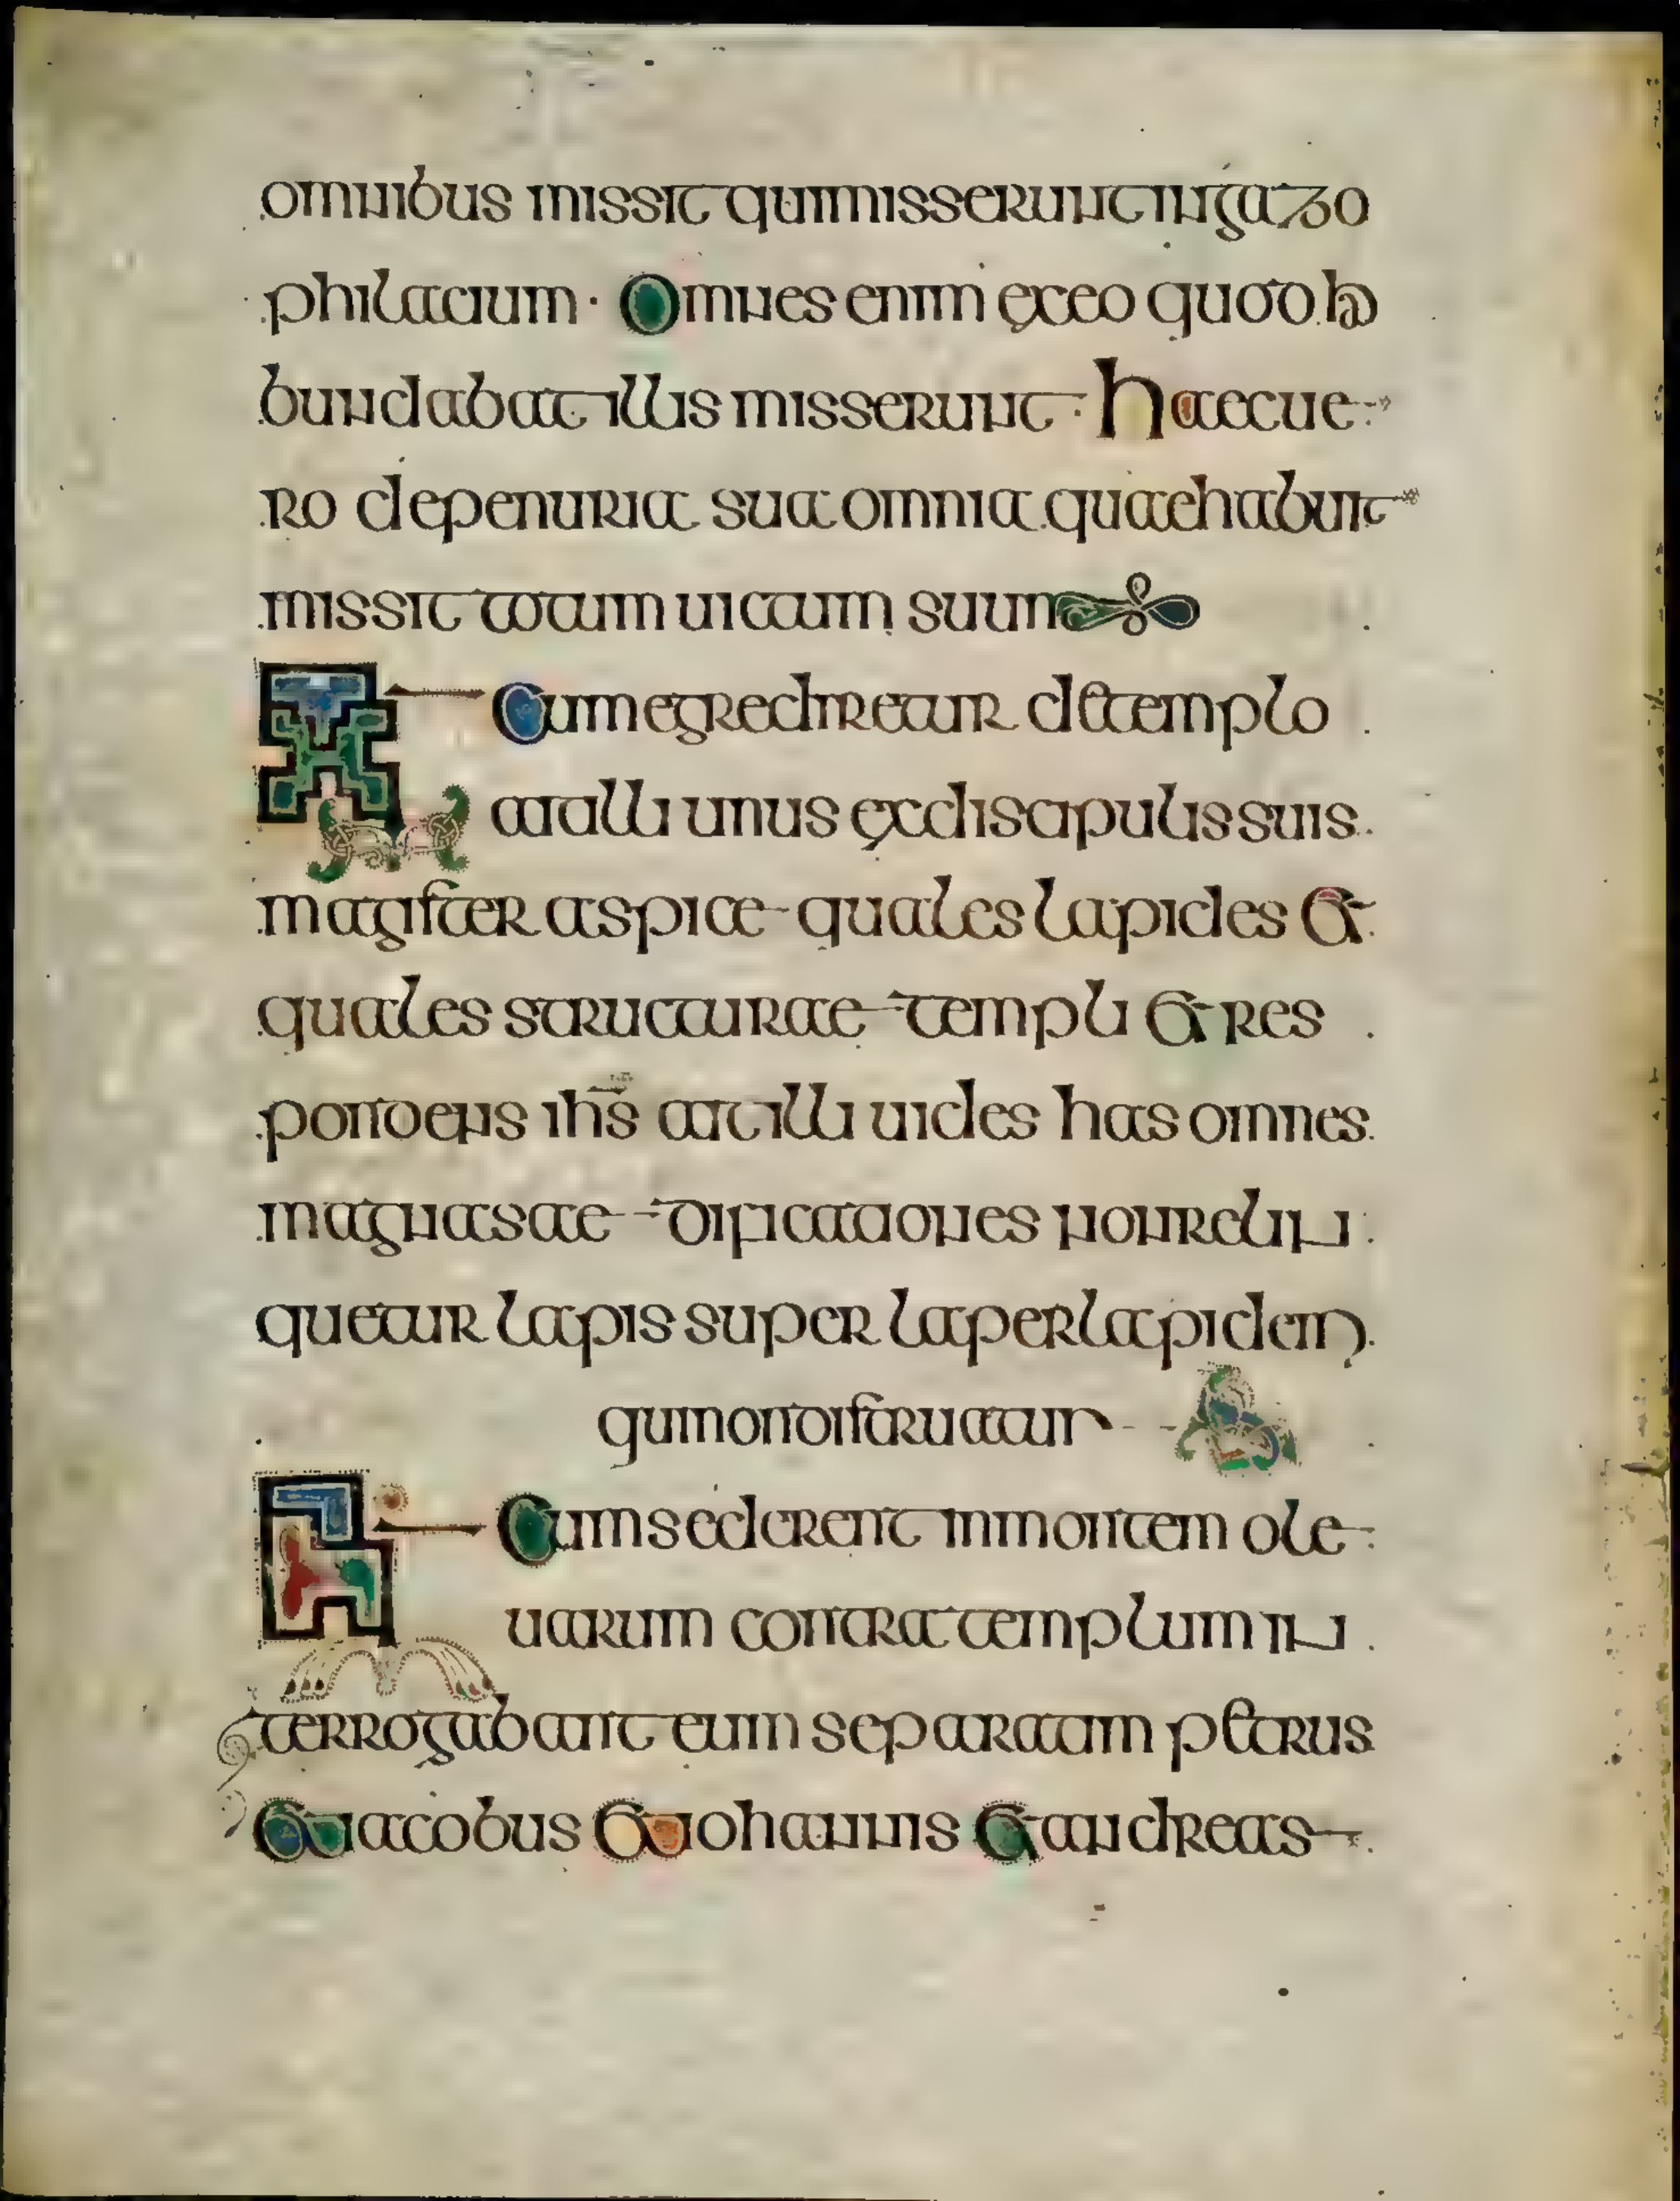 omnibus missit qui misserunt in gazo
philacium · Omnes enim ex eo quod ha
bundabat illis misserunt · haec ue
ro de penuria sua omnia quae habuit
missit totum uictum suum
Et Cum egrediretur de templo
ait illi unus ex discipulis suis
magister aspice quales lapides et
quales structurae templi et res
pondens ihs ait illi uides has omnes
magnas aedificationes non relin
quetur lapis super laper lapidem
qui non distruatur
Et Cum sederent in montem ole
uarum contra templum in
terrogabant eum separatim petrus
et iacobus et iohannis et andreas